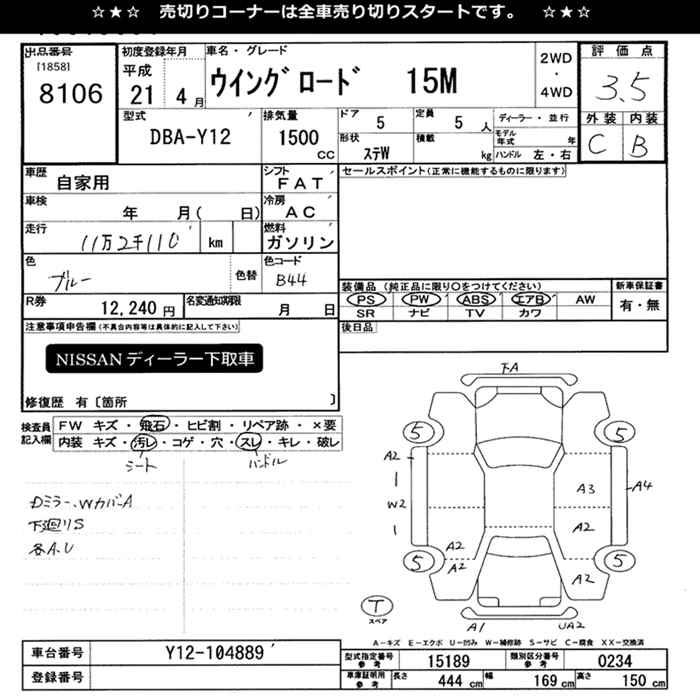 ☆★☆ 売切りコーナーは全車売り切りスタートです。 ☆★☆
出品番号 [1858] 8106
初度登録年月 平成 21 4月
車名・グレード ウイングロード 15M
2WD・4WD
評価点 3.5
外装 内装
C B
型式 DBA-Y12
排気量 1500 CC
ドア 5
定員 5 人
形状 ステW
積載 kg
ディーラー・並行
モデル年式 年
ハンドル 左・右
車歴 自家用
シフト FAT
セールスポイント(正常に機能するものに限ります)
車検 年 月( 日)
冷房 AC
走行 11万2千110 km
燃料 ガソリン
色 ブルー 色替
色コード B44
装備品 (純正品に限り○をつけてください)
PS PW ABS エアB AW
SR ナビ TV カワ
新車保証書
有・無
R券 12,240 円
名変通知期限 月 日
後日品
注意事項申告欄(不具合内容等は具体的に記入して下さい)
NISSANディーラー下取車
修復歴 有〔箇所 〕
検査員記入欄
FW キズ・飛石・ヒビ割・リペア跡・×要
内装 キズ・汚レ・コゲ・穴・スレ・キレ・破レ
シート ハンドル
Dミラー、WカバーA
下廻りS
各A.U
下A
5 5
A2 A3 A4
W2 A2
A2
A2 A2
5 5
T スペア
A1 UA2
A-キズ E-エクボ U-凹み W-補修跡 S-サビ C-腐食 XX-交換済
車台番号 Y12-104889
登録番号
型式指定番号参考 15189
類別区分番号参考 0234
車庫証明用参考 長さ 444 cm 幅 169 cm 高さ 150 cm